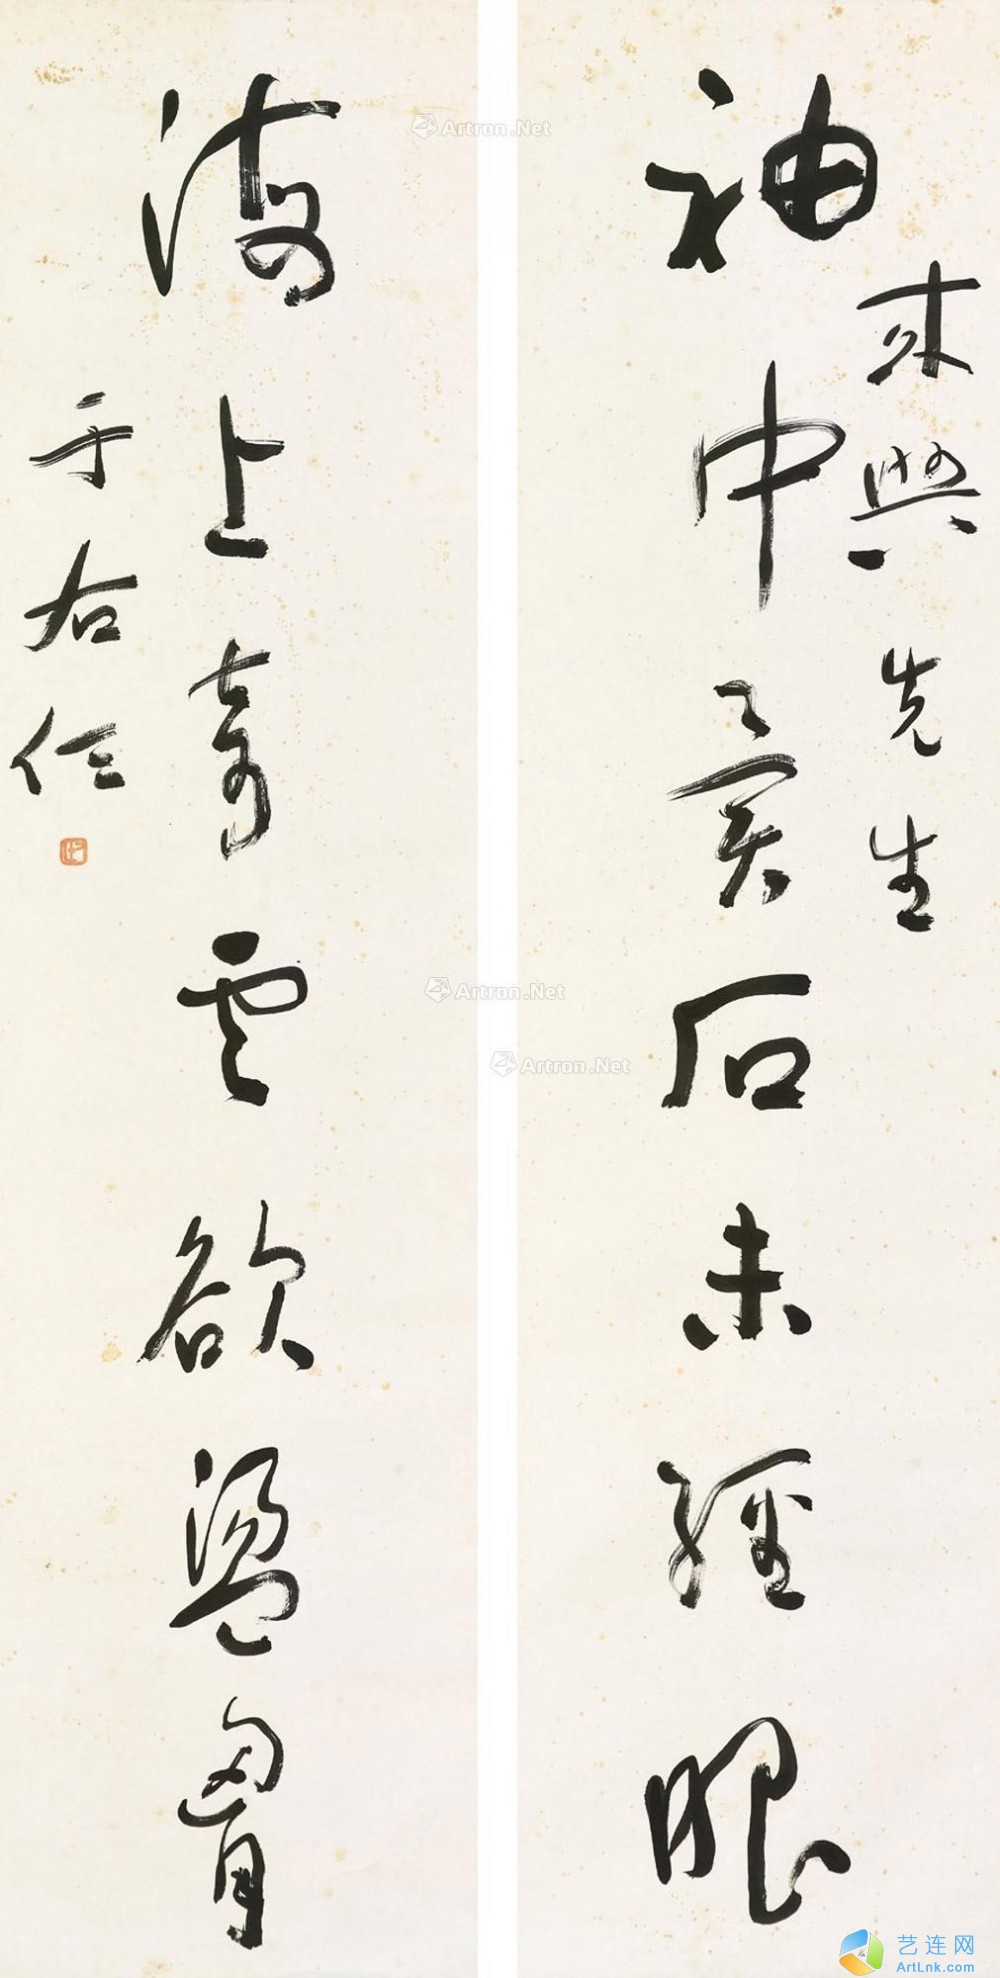 先生
袖中異石未經眼
海上奇雲欲盪胷
于右任
Artron.Net
Artron.Net
Artron.Net
艺连网
ArtLnk.com